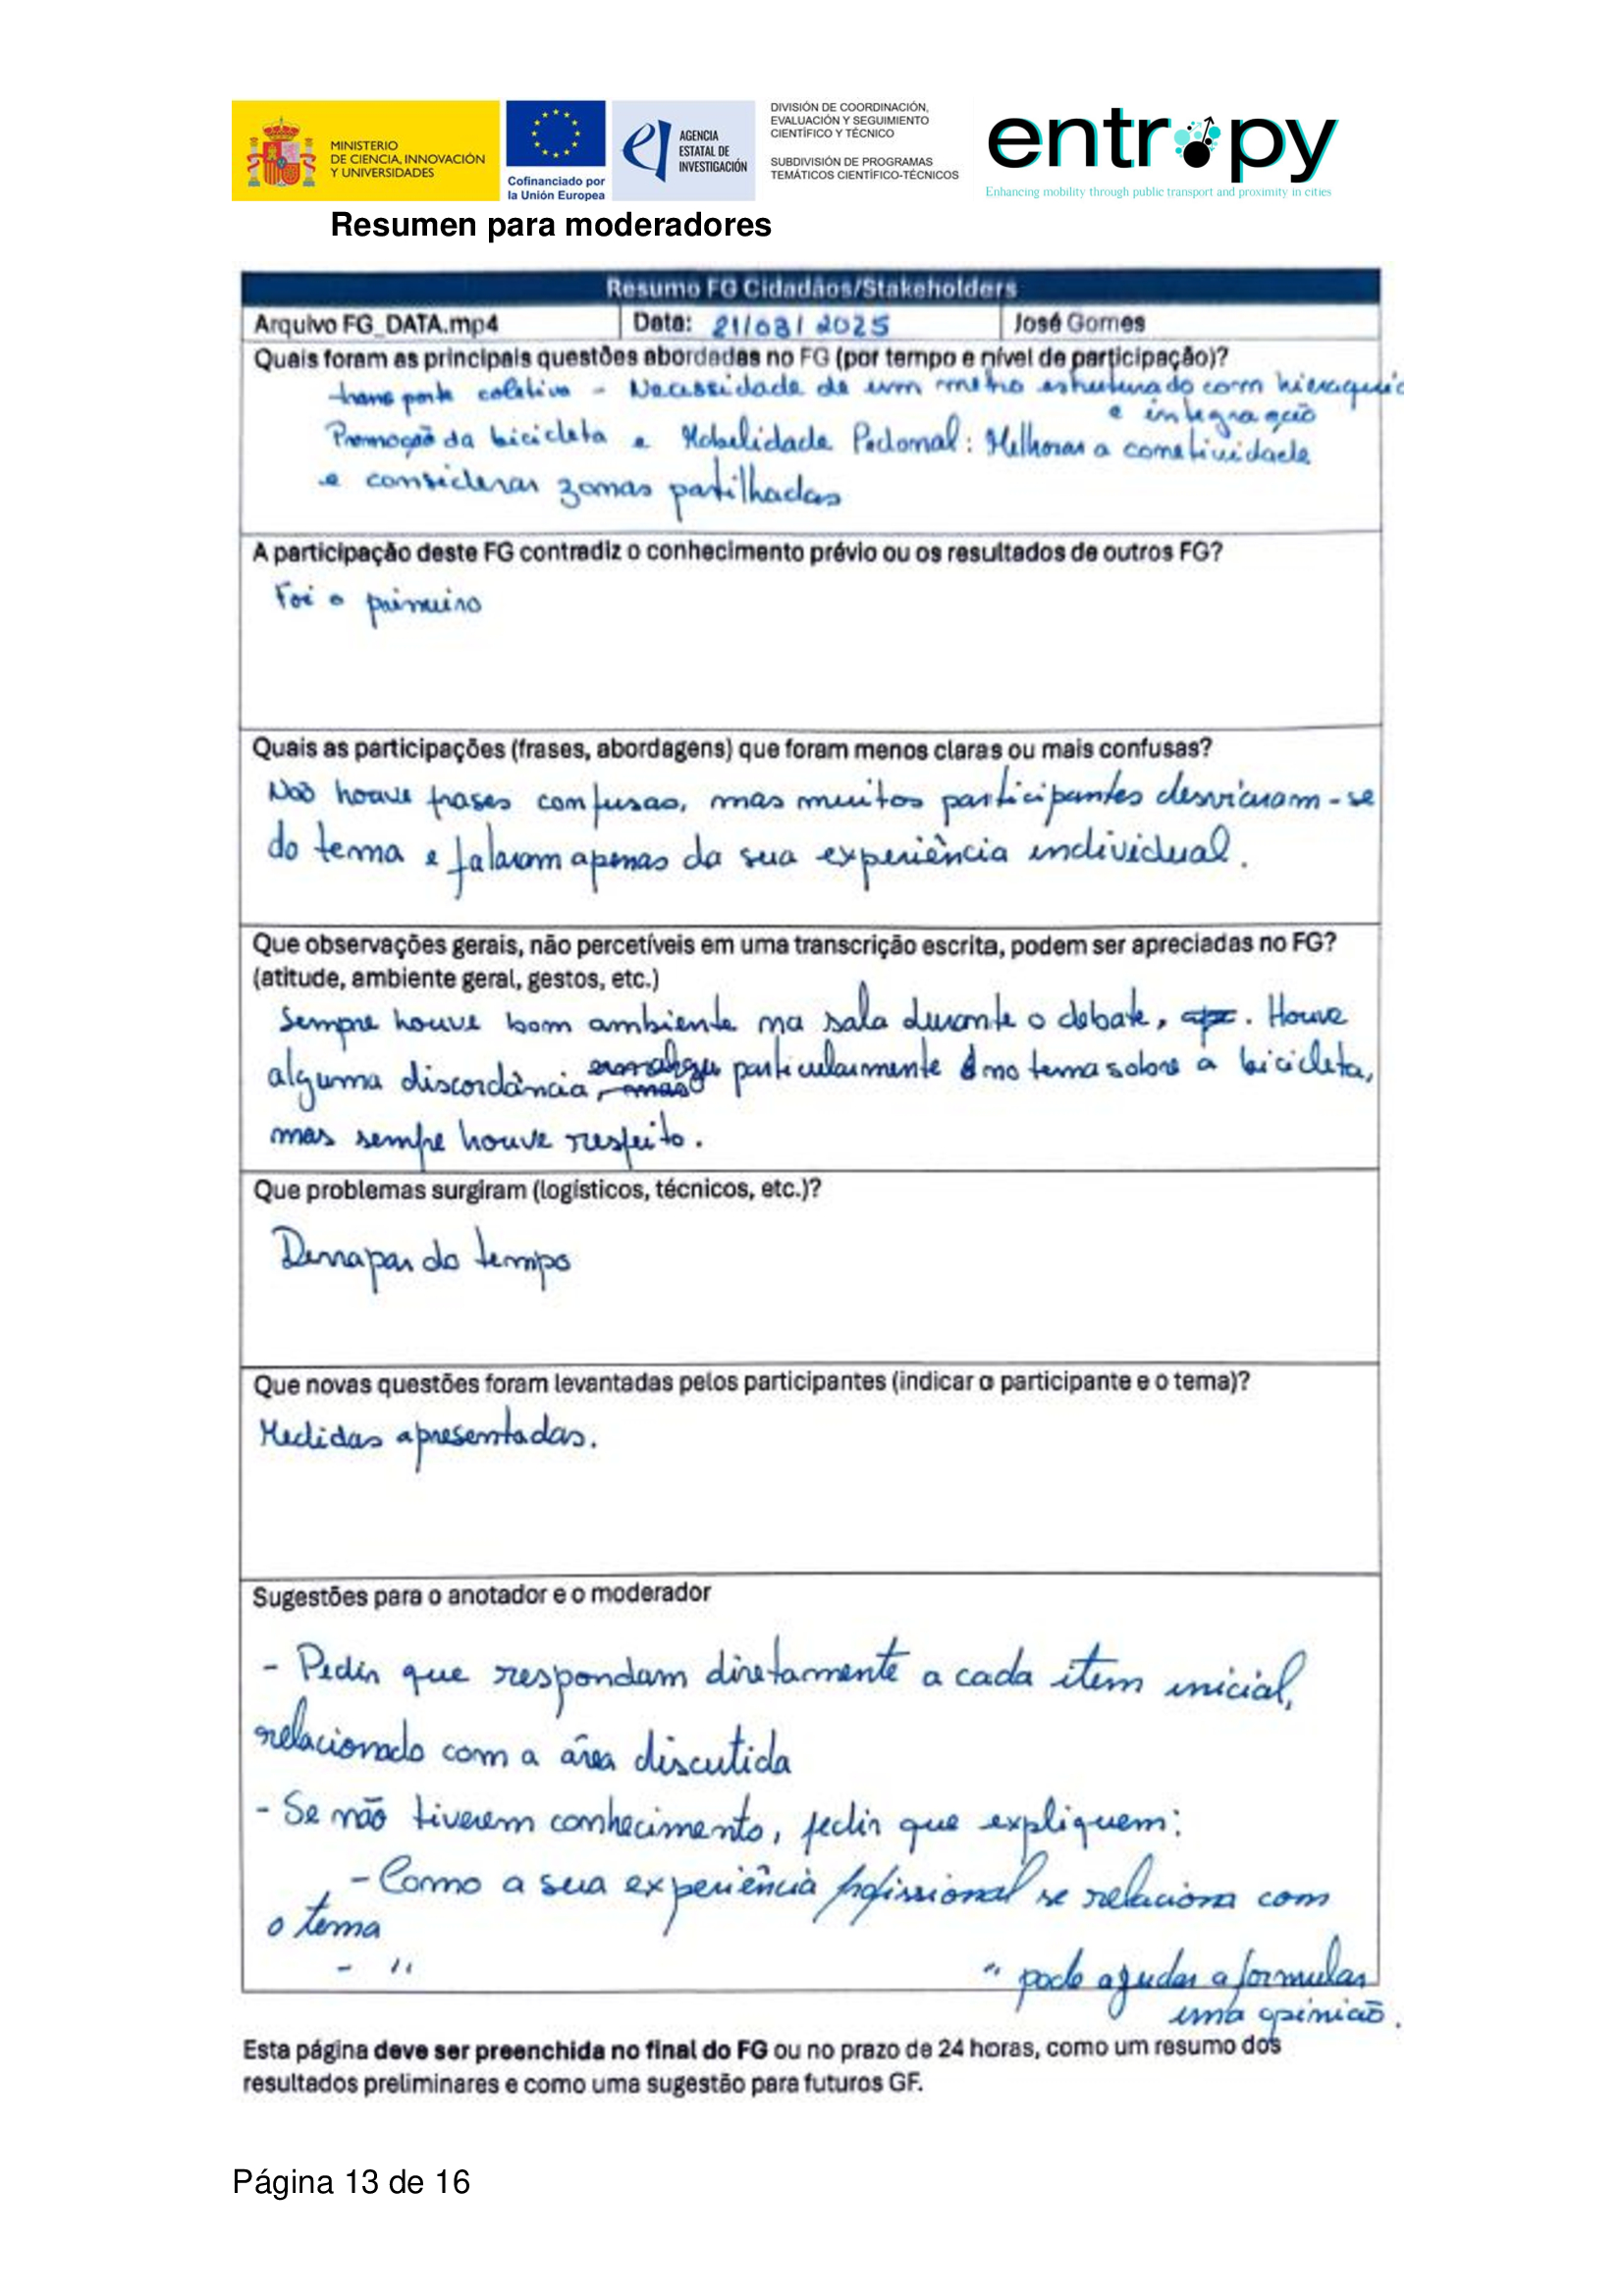 MINISTERIO
DE CIENCIA, INNOVACIÓN
Y UNIVERSIDADES
Cofinanciado por
la Unión Europea
AGENCIA
ESTATAL DE
INVESTIGACIÓN
DIVISIÓN DE COORDINACIÓN,
EVALUACIÓN Y SEGUIMIENTO
CIENTÍFICO Y TÉCNICO
SUBDIVISIÓN DE PROGRAMAS
TEMÁTICOS CIENTÍFICO-TÉCNICOS
entropy
Enhancing mobility through public transport and proximity in cities
Resumen para moderadores
Resumo FG Cidadãos/Stakeholders
Arquivo FG_DATA.mp4 Data: 21/03/2025 José Gomes
Quais foram as principais questões abordadas no FG (por tempo e nível de participação)?
transporte coletivo - Necessidade de um metro estruturado com
e integração
Promoção da bicicleta e Mobilidade Pedonal: Melhorar a conetividade
e considerar zonas partilhadas
A participação deste FG contradiz o conhecimento prévio ou os resultados de outros FG?
Foi o primeiro
Quais as participações (frases, abordagens) que foram menos claras ou mais confusas?
Não houve frases confusas, mas muitos participantes desviaram-se
do tema e falaram apenas da sua experiência individual.
Que observações gerais, não percetíveis em uma transcrição escrita, podem ser apreciadas no FG?
(atitude, ambiente geral, gestos, etc.)
Sempre houve bom ambiente na sala durante o debate, . Houve
alguma discordância particularmente no tema sobre a bicicleta,
mas sempre houve respeito.
Que problemas surgiram (logísticos, técnicos, etc.)?
Derrapar do tempo
Que novas questões foram levantadas pelos participantes (indicar o participante e o tema)?
Medidas apresentadas.
Sugestões para o anotador e o moderador
- Pedir que respondam diretamente a cada item inicial,
relacionado com a área discutida
- Se não tiverem conhecimento, pedir que expliquem:
- Como a sua experiência profissional se relaciona com
o tema
- " " pode ajudar a formular
uma opinião.
Esta página deve ser preenchida no final do FG ou no prazo de 24 horas, como um resumo dos
resultados preliminares e como uma sugestão para futuros GF.
Página 13 de 16